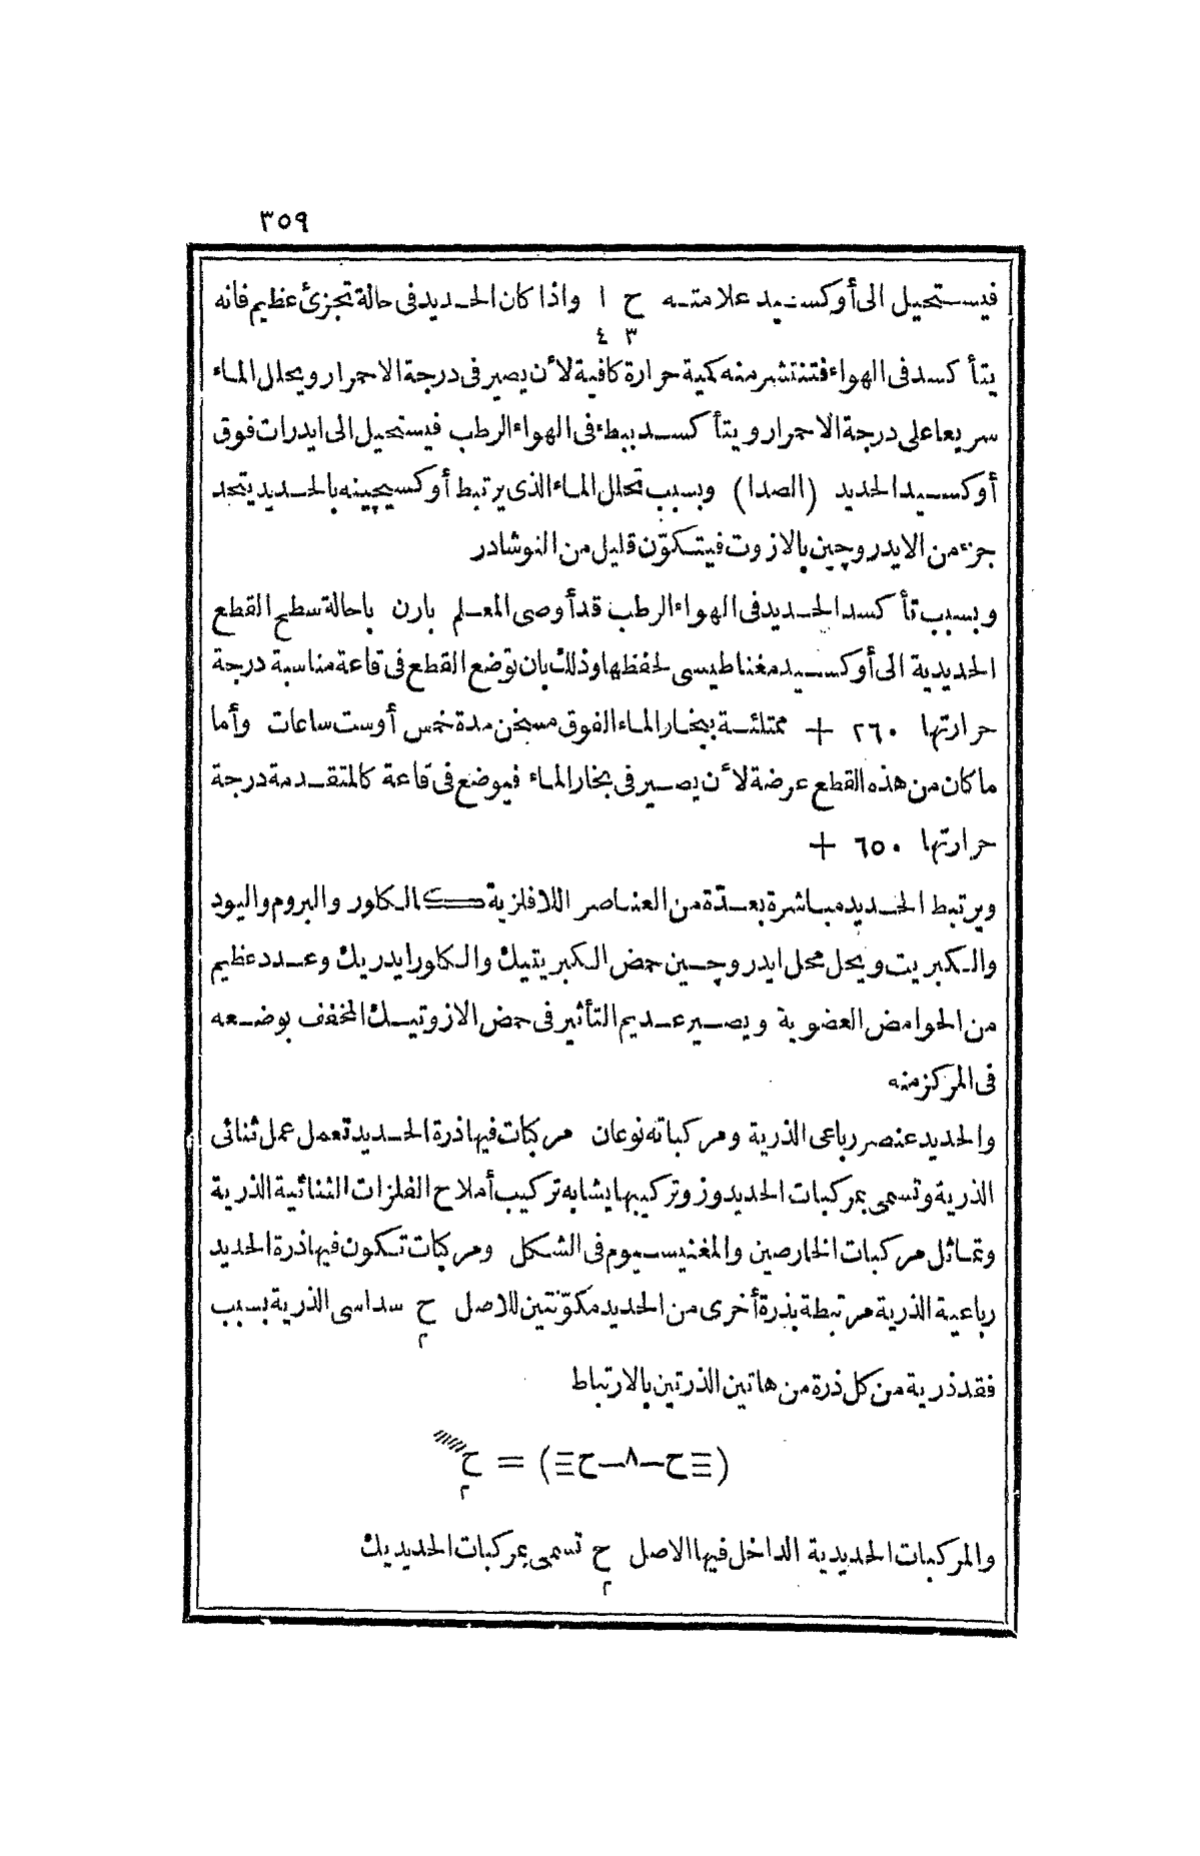 ٣٥٩
فيستحيل الى أوكسيد علامته ح ا واذا كان الحديد فى حالة تجزئ عظيم فانه
٣ ٤
يتأكسد فى الهواء فتنتشر منه كمية حرارة كافية لأن يصير فى درجة الاحمرار ويحلل الماء
سريعا على درجة الاحمرار ويتأكسد ببطء فى الهواء الرطب فيستحيل الى ايدرات فوق
أوكسيد الحديد (الصدا) وبسبب تحلل الماء الذى يرتبط أوكسيچينه بالحديد يتحد
جزء من الايدروچين بالازوت فيتكوّن قليل من النوشادر
وبسبب تأكسد الحديد فى الهواء الرطب قد أوصى المعلم بارن باحالة سطح القطع
الحديدية الى أوكسيد مغناطيسى لحفظها وذلك بان توضع القطع فى قاعة مناسبة درجة
حرارتها ٢٦٠ + ممتلئة ببخار الماء الفوق مسخن مدة خمس أوست ساعات وأما
ما كان من هذه القطع عرضة لأن يصير فى بخار الماء فيوضع فى قاعة كالمتقدمة درجة
حرارتها ٦٥٠ +
ويرتبط الحديد مباشرة بعدّة من العناصر اللافلزية كالكلور والبروم واليود
والكبريت ويحل محل ايدروچين حمض الكبريتيك والكلورايدريك وعدد عظيم
من الحوامض العضوية ويصير عديم التأثير فى حمض الازوتيك المخفف بوضعه
فى المركز منه
والحديد عنصر رباعى الذرية ومركباته نوعان مركبات فيها ذرة الحديد تعمل عمل ثنائى
الذرية وتسمى بمركبات الحديدوز وتركيبها يشابه تركيب أملاح الفلزات الثنائية الذرية
وتماثل مركبات الخارصين والمغنيسيوم فى الشكل ومركبات تكون فيها ذرة الحديد
رباعية الذرية مرتبطة بذرة أخرى من الحديد مكوّنتين للاصل ح سداسى الذرية بسبب
٢
فقد ذرية من كل ذرة من هاتين الذرتين بالارتباط
(≡ح-٨-ح≡) = ح
٢
والمركبات الحديدية الداخل فيها الاصل ح تسمى بمركبات الحديديك
٢